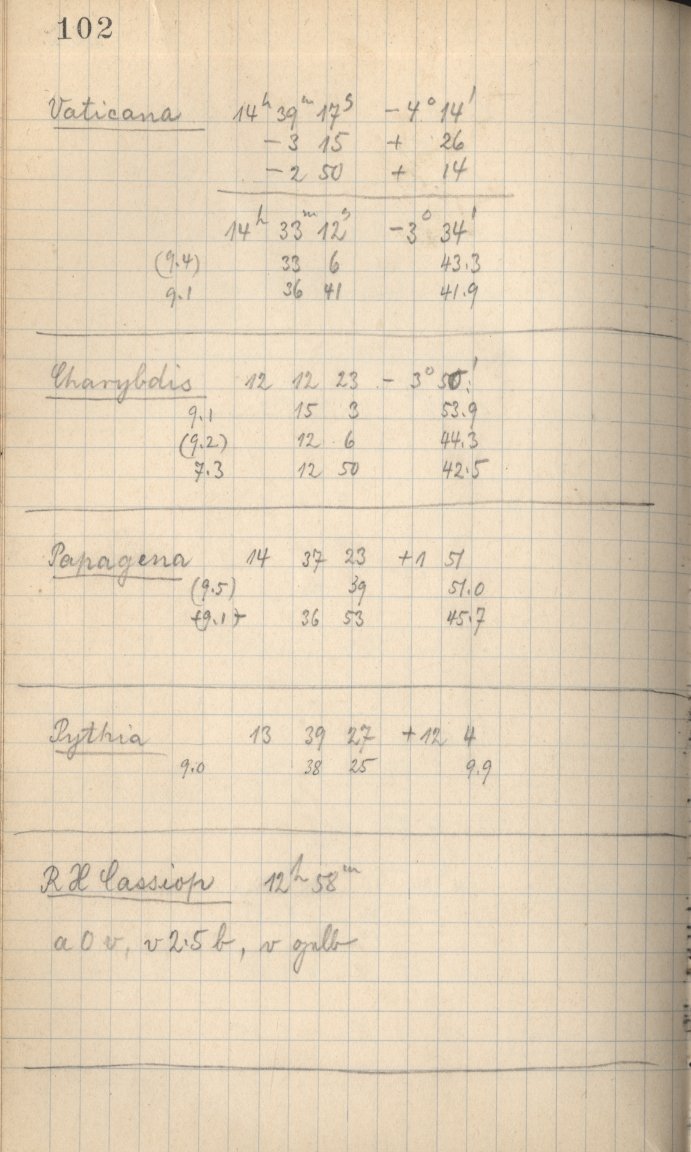 102
Vaticana 14h 39m 17s -4° 14'
-3 15 + 26
-2 50 + 14
14h 33m 12s -3° 34'
(9.4) 33 6 43.3
9.1 36 41 41.9
Charybdis 12 12 23 - 3° 50!'
9.1 15 3 53.9
(9.2) 12 6 44.3
7.3 12 50 42.5
Papagena 14 37 23 +1 51
(9.5) 39 51.0
(9.1) 36 53 45.7
Pythia 13 39 27 +12 4
9.0 38 25 9.9
R X Cassiop 12h 58m
a 0 v, v 2.5 b, v gelb